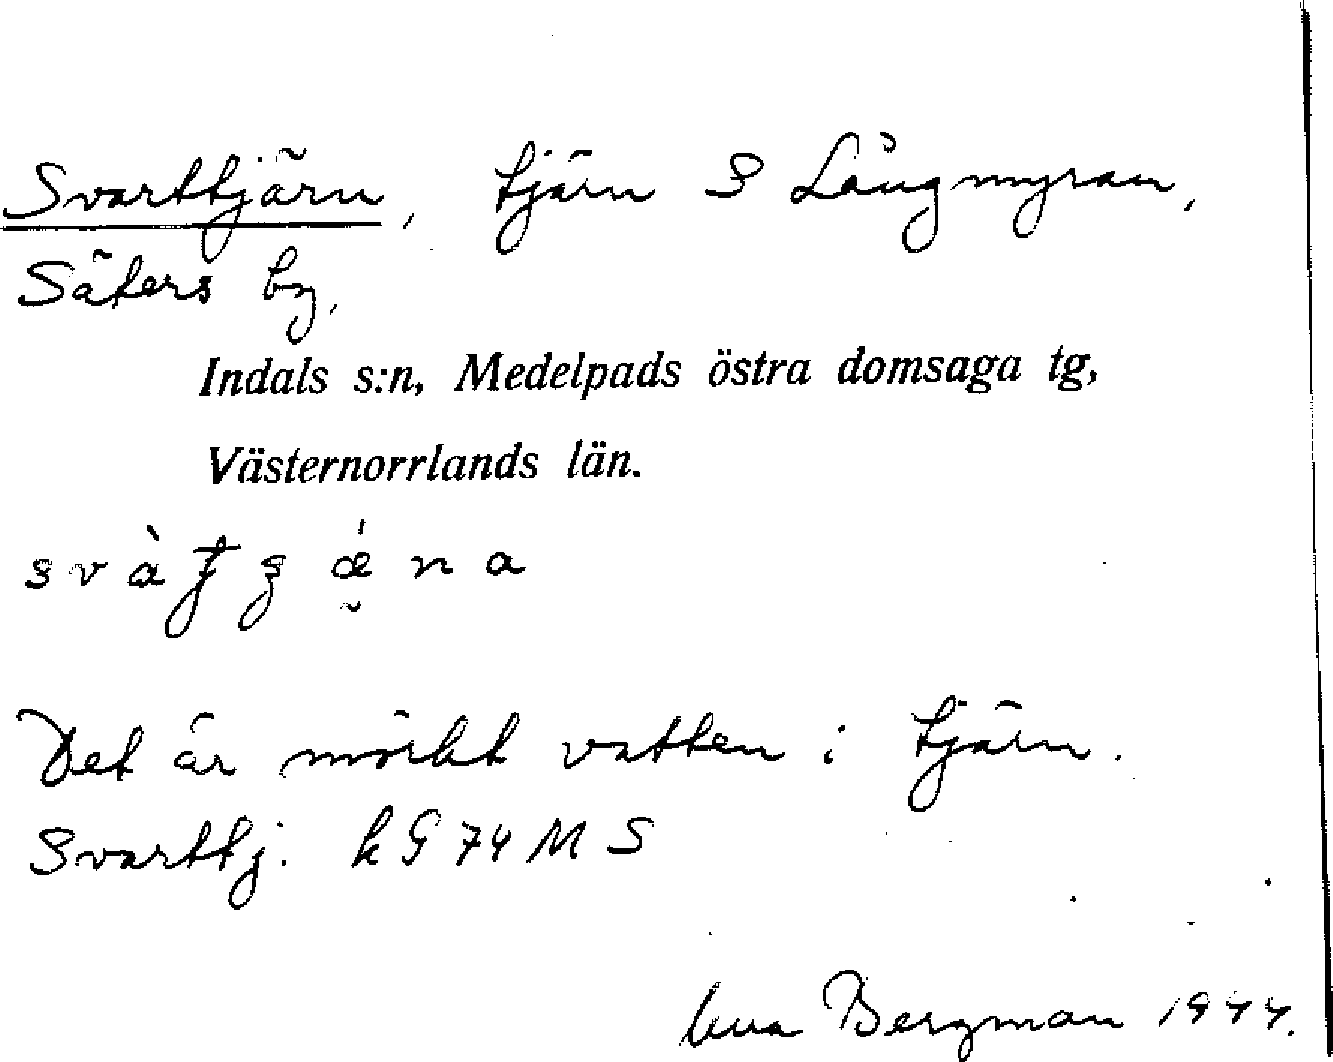 Svarttjärn, tjärn S Långmyran,
Säters by,
Indals s:n, Medelpads östra domsaga tg,
Västernorrlands län.
Det är mörkt vatten i tjärn.
Svarttj. kG74MS
Bergman 1944.